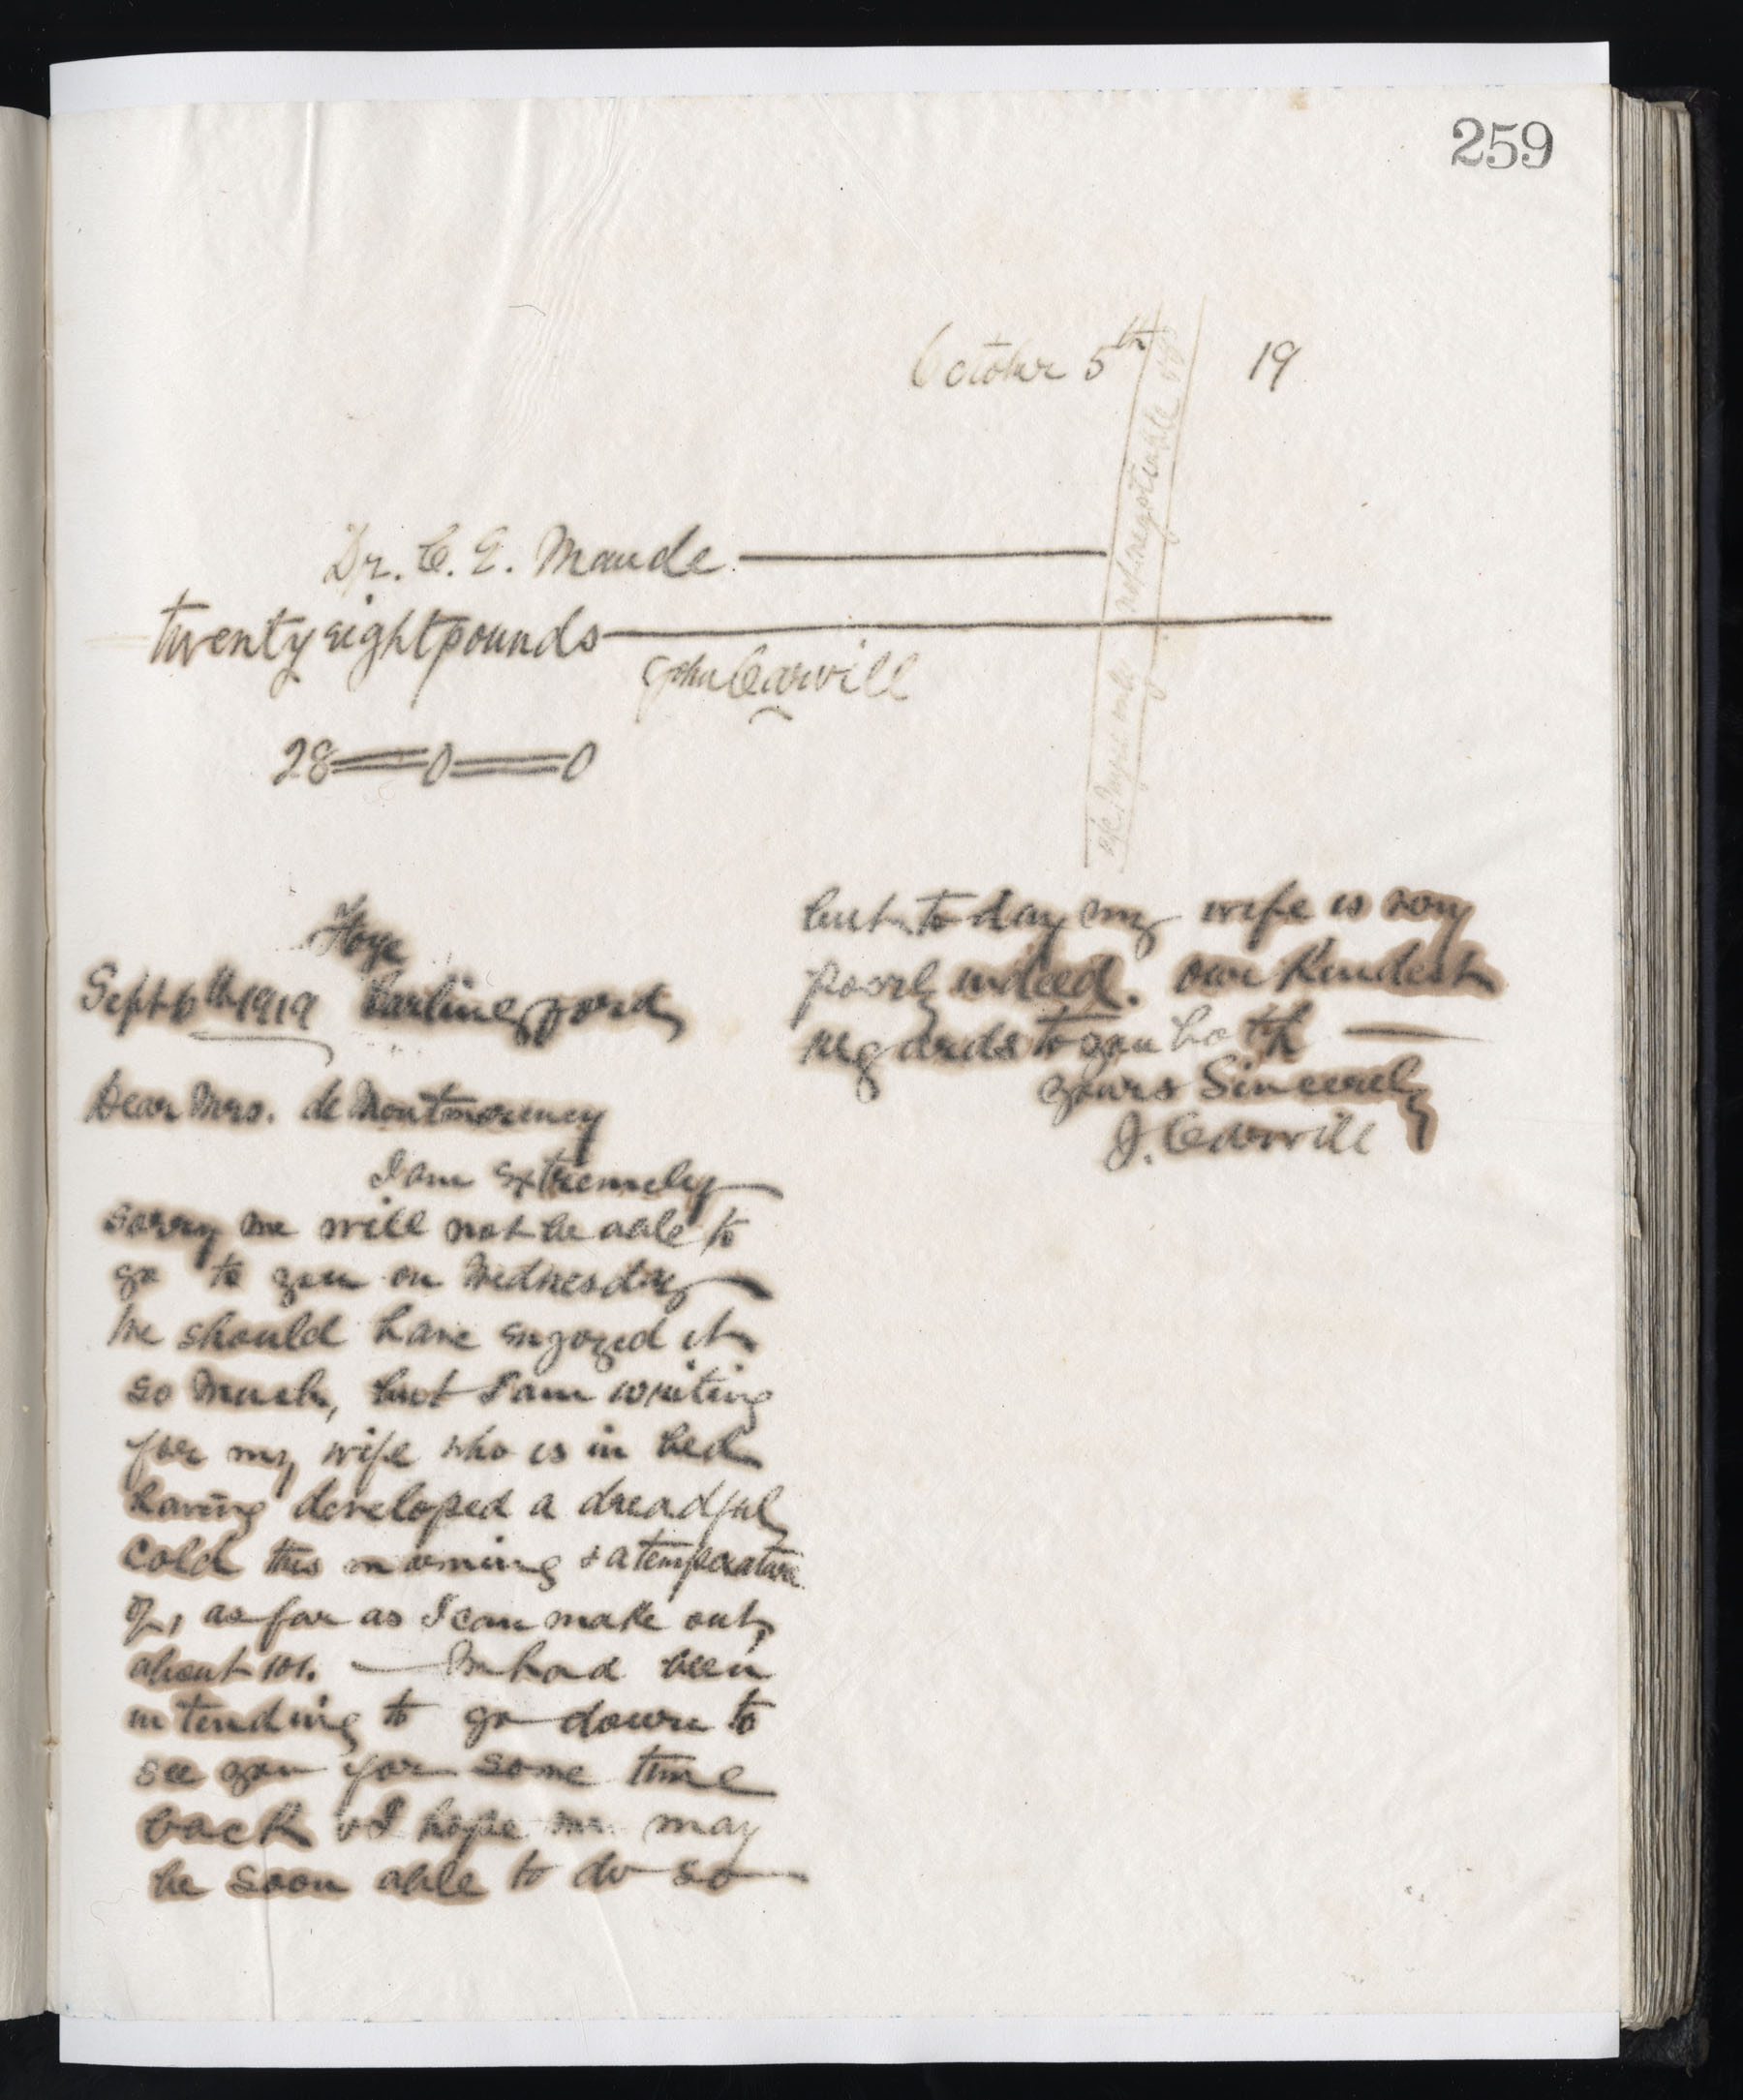 259
October 5th 19
Dr. C. E. Maude
twenty eight pounds
John Carvill
28 = 0 = 0
a/c Payee only not negotiable
Sept 6th 1919 Carlingford
Dear Mrs. de Montmorency
I am extremely
sorry we will not be able to
go to you on Wednesday
We should have enjoyed it
so much, but I am writing
for my wife who is in bed
having developed a dreadful
cold this morning & a temperature
of, as far as I can make out,
about 101. — We had been
intending to go down to
see you for some time
back & I hope we may
be soon able to do so
but to day my wife is very
poorly indeed. Our kindest
regards to you both —
yours Sincerely
J. Carvill